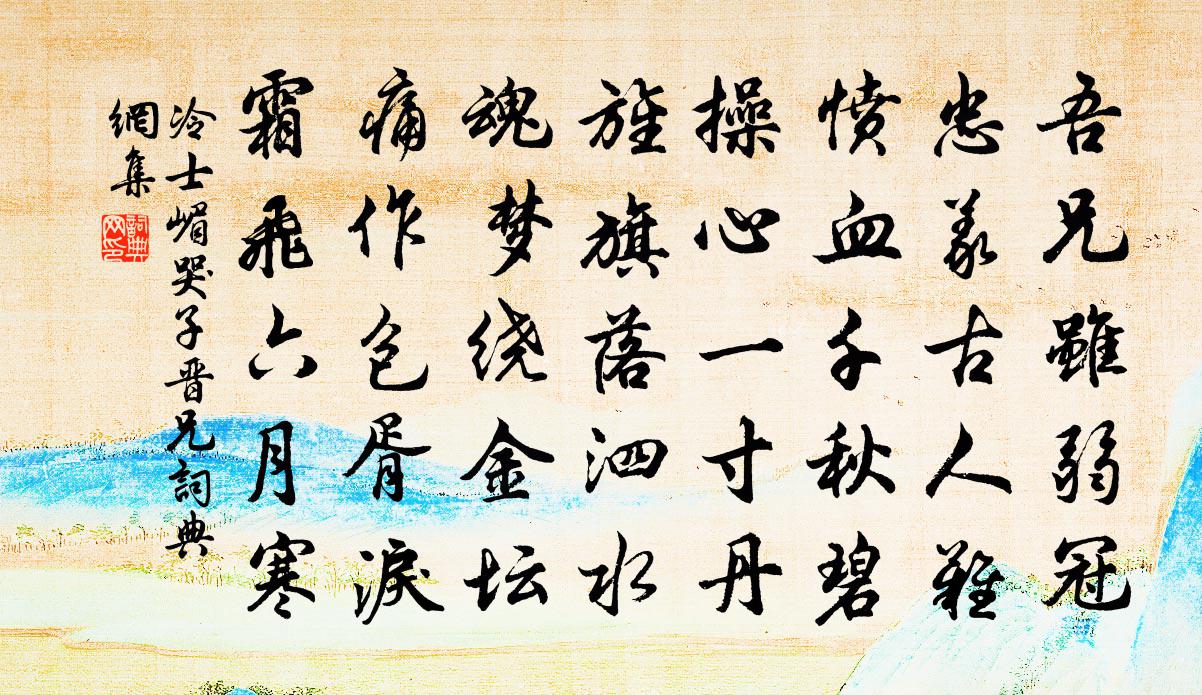 吾兄雖弱冠
忠义古人難
愤血千秋碧
操心一寸丹
旌旗落泗水
魂梦绕金坛
痛作包胥淚
霜飛六月寒
冷士嵋哭子晋兄詞典
網集
詞典网印